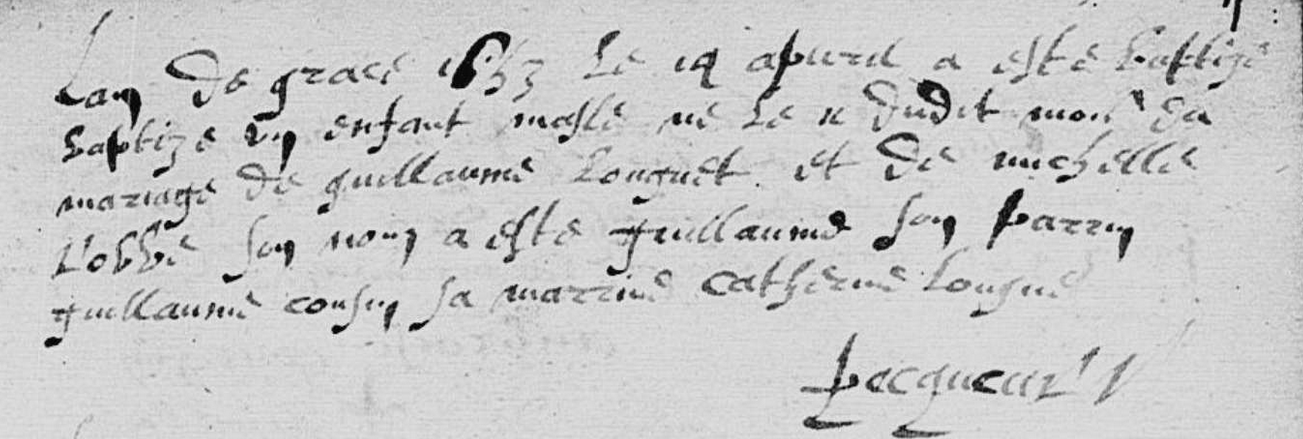 Lan de grace 1633 Le 14 apvril a esté baptizé
baptizé un enfant masle né le u dudit mois du
mariage de guillaume Longuet et de michelle
Lobbé son nom a esté guillaume son parrin
guillaume cousin sa marrine Catherine Longue